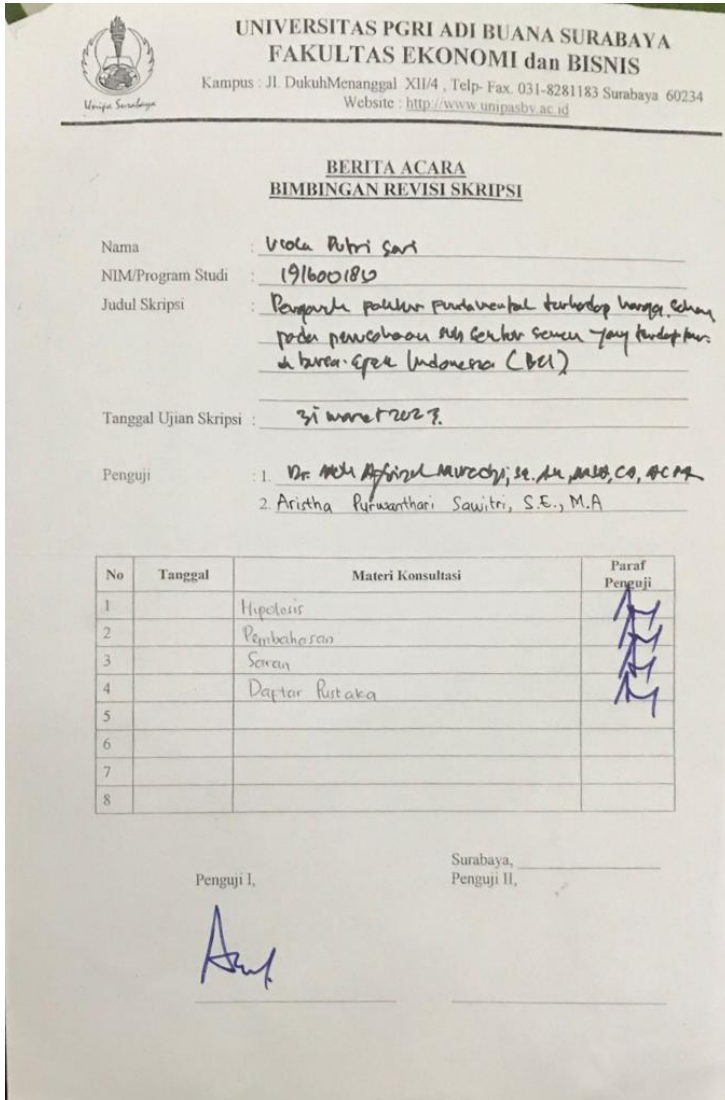 UNIVERSITAS PGRI ADI BUANA SURABAYA
FAKULTAS EKONOMI dan BISNIS
Kampus : Jl. DukuhMenanggal XII/4 , Telp- Fax. 031-8281183 Surabaya 60234
Website : http://www.unipasby.ac.id
Unipa Surabaya
BERITA ACARA
BIMBINGAN REVISI SKRIPSI
Nama : Viola Putri Sari
NIM/Program Studi : 191600180
Judul Skripsi : Pengaruh faktor fundamental terhadap harga saham
pada perusahaan sub sektor semen yang terdaftar
di bursa efek Indonesia (BEI)
Tanggal Ujian Skripsi : 31 maret 2023.
Penguji : 1. Dr. CA,
2. Aristha Purwanthari Sawitri, S.E., M.A
No Tanggal Materi Konsultasi Paraf Penguji
1 Hipotesis
2 Pembahasan
3 Saran
4 Daftar Pustaka
5
6
7
8
Surabaya,
Penguji I, Penguji II,